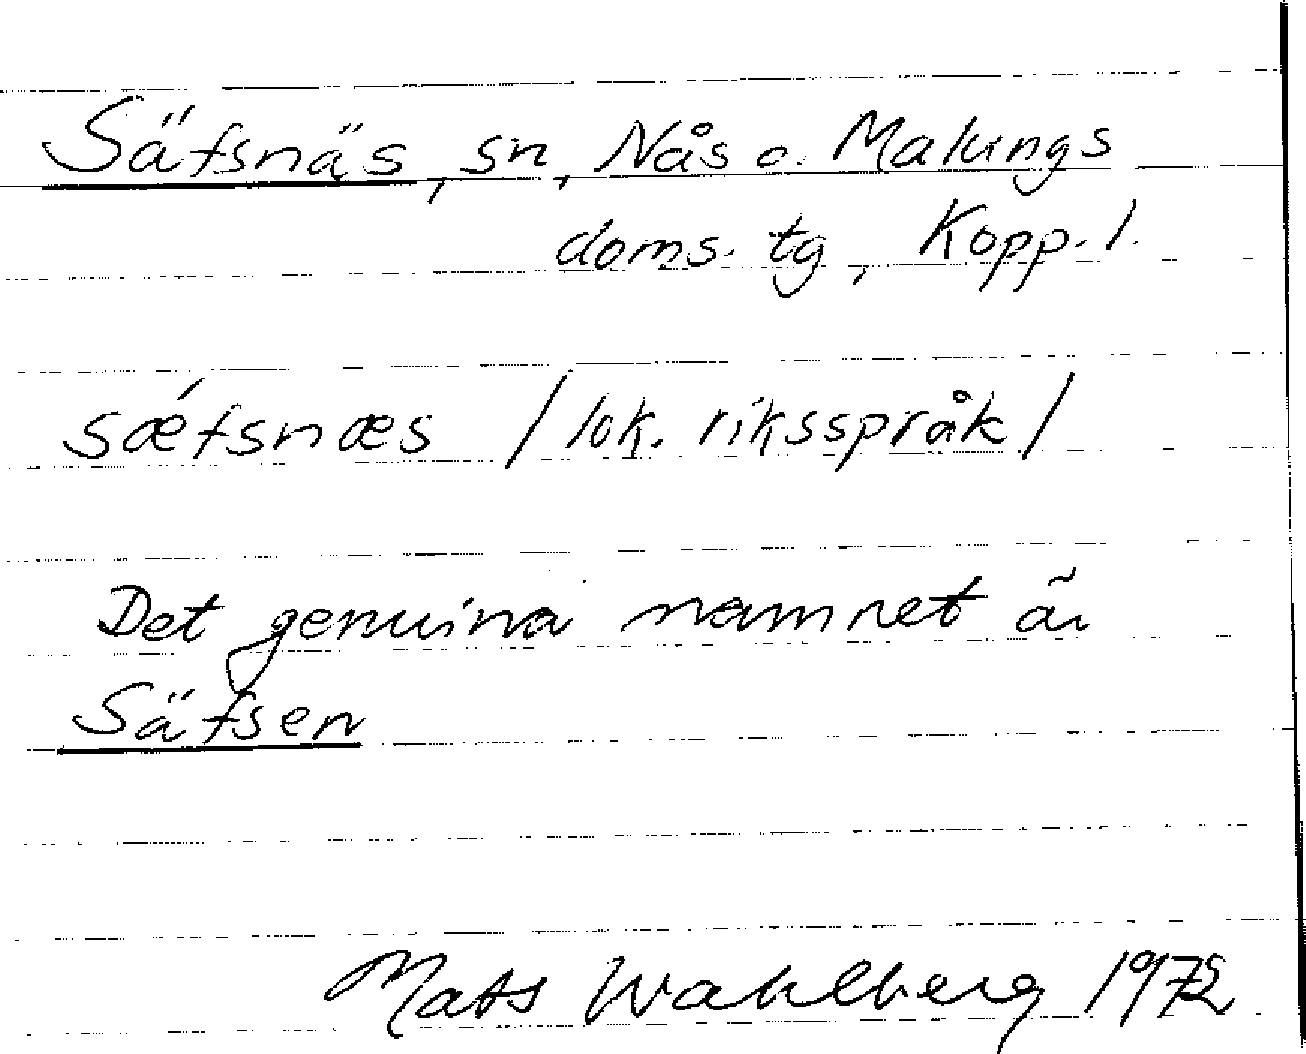 Säfsnäs, sn, Nås o. Malungs
doms. tg, Kopp. l.
sǽfsnæs /lok. riksspråk/
Det genuina namnet är
Säfsen
Mats Wahlberg 1972